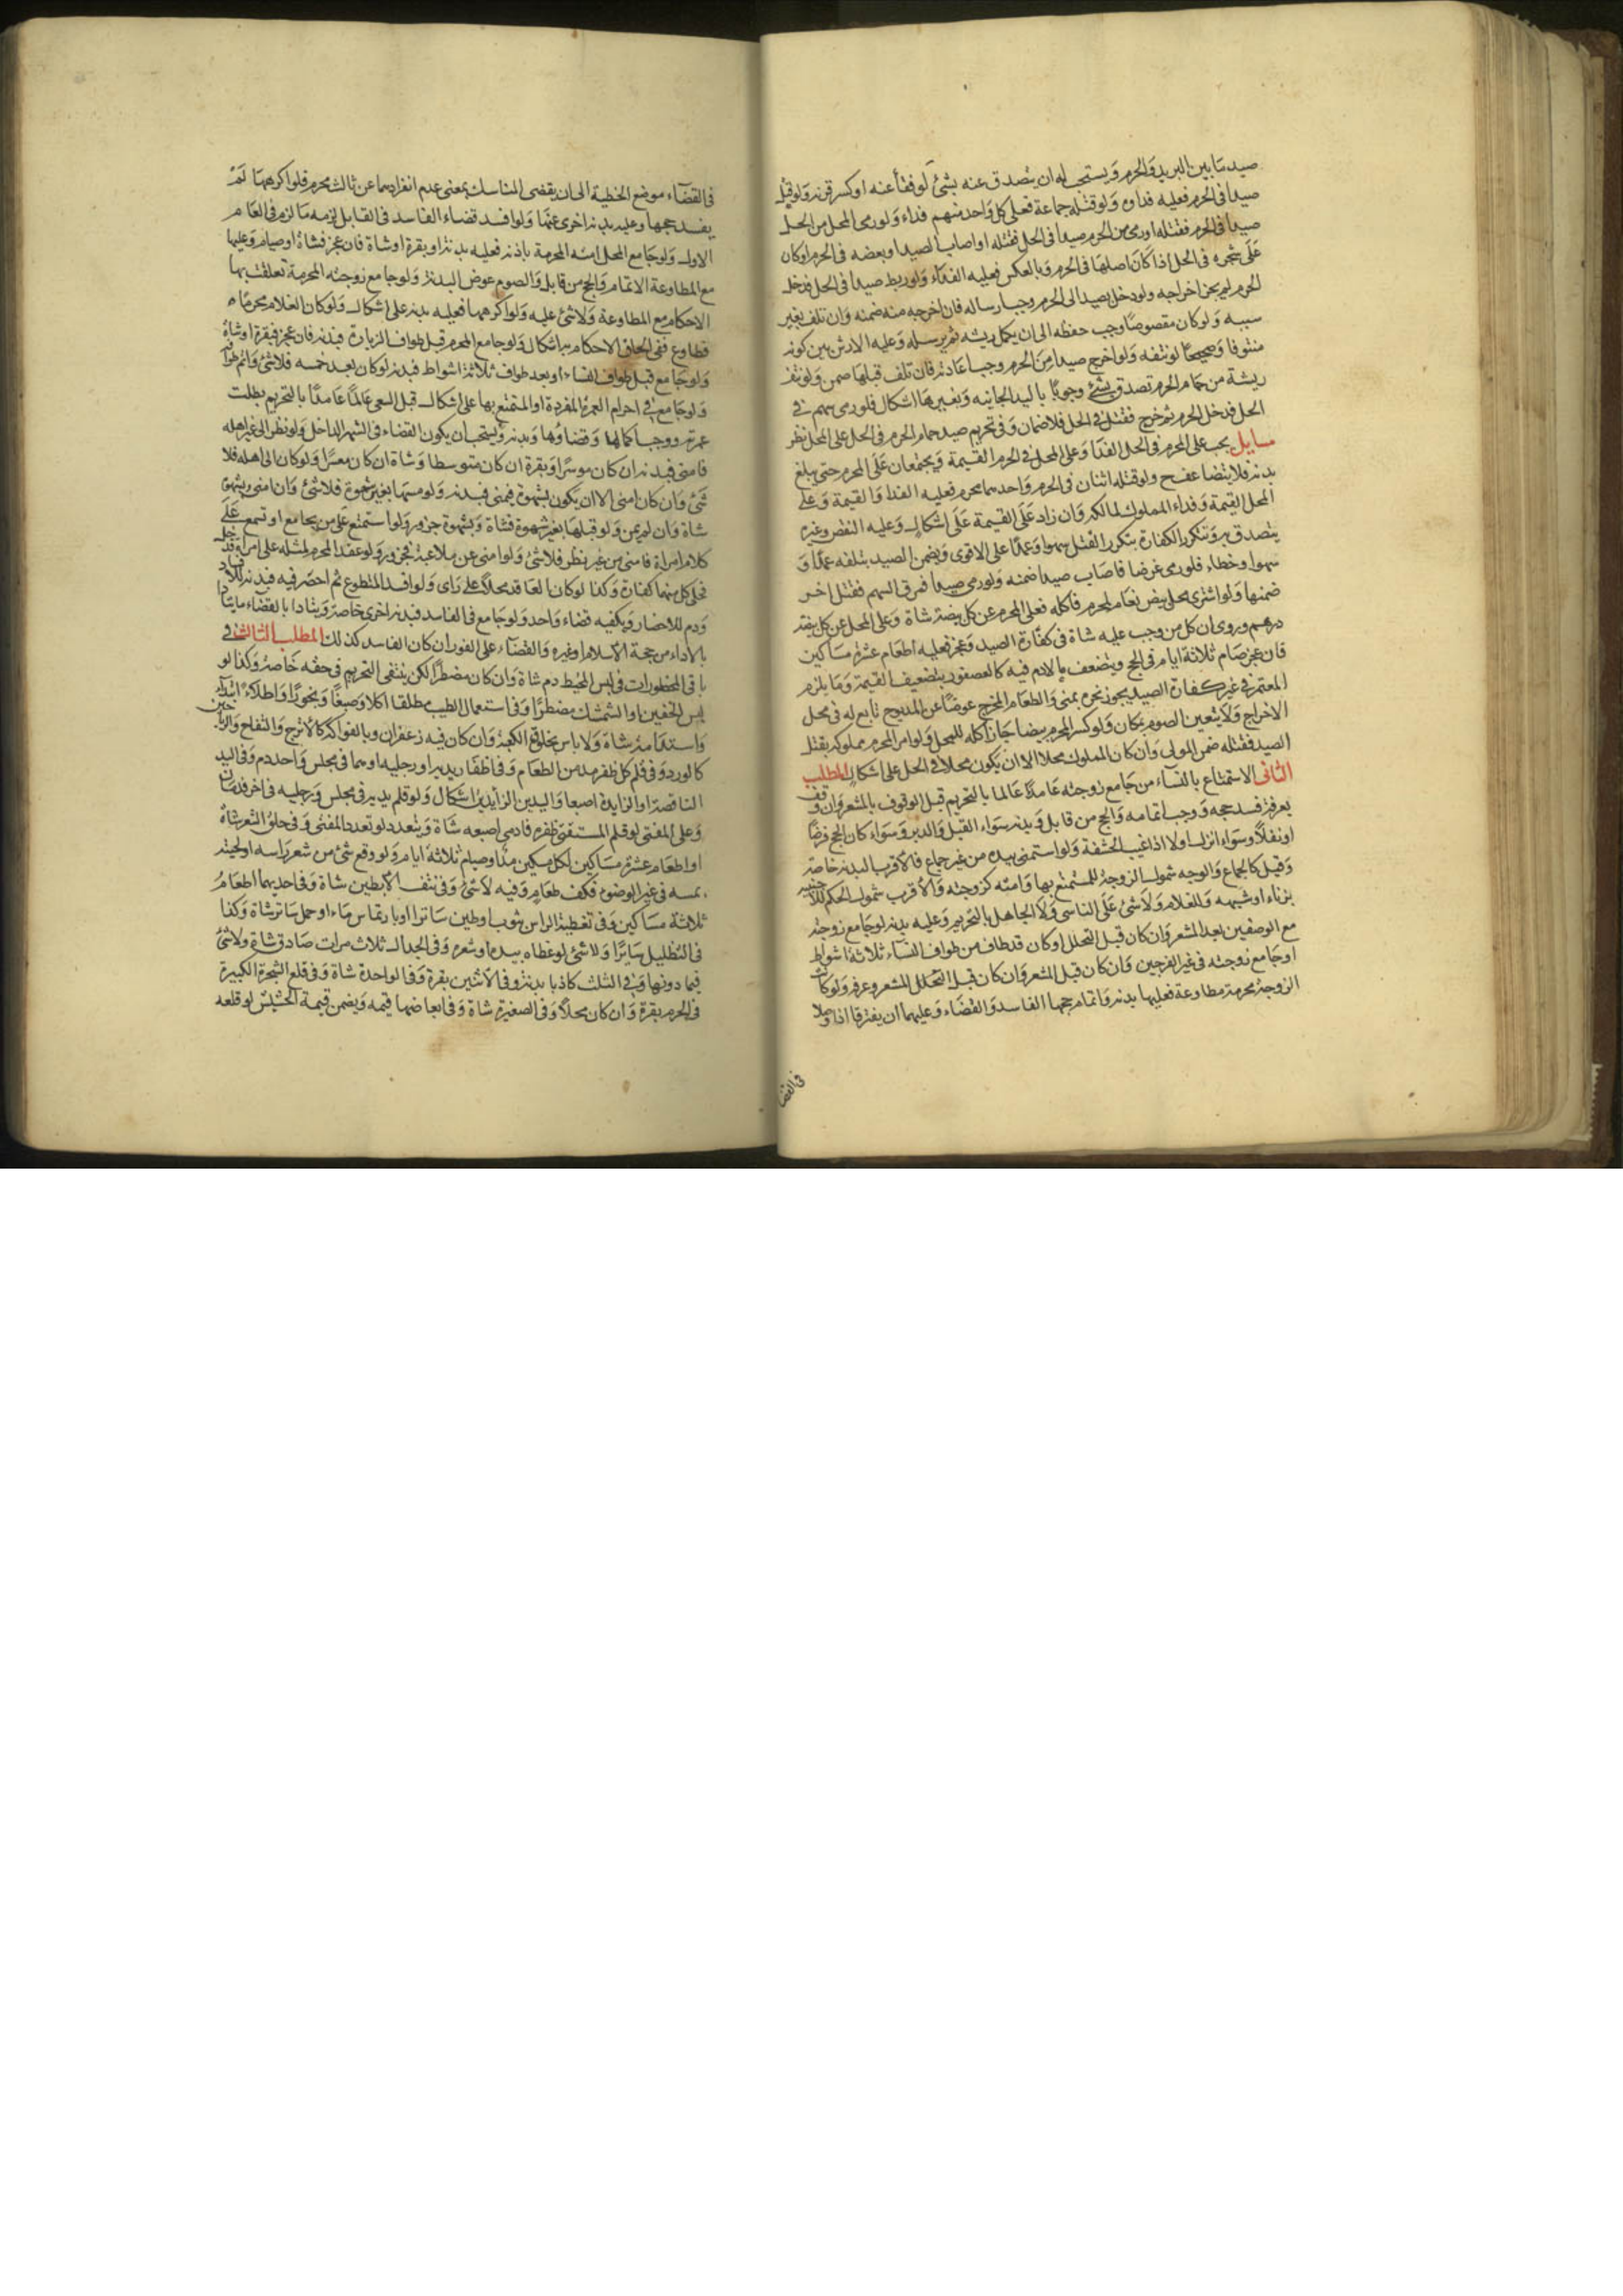 صيد ما بين البريد والحرم ويستحب له ان يتصدق عنه بشئ لو فقأ عينه او كسر قرنه ولو قتل
صيدا في الحرم فعليه فداؤه ولو قتله جماعة فعلى كل واحد منهم فداء ولو رمى المحل من الحل
صيدا في الحرم فقتله او رمى من الحرم صيدا في الحل فقتله او اصاب الصيد او بعضه في الحرم او كان
على شجرة في الحل اذا كان اصلها في الحرم وبالعكس فعليه الفداء ولو ربط صيدا في الحل فدخل
الحرم لم يجز اخراجه ولو دخل بصيد الى الحرم وجب ارساله فان اخرجه منه ضمنه وان تلف بغير
سببه ولو كان مقصوصا وجب حفظه الى ان يكمل ريشه ثم يرسله وعليه الارش بين كونه
منتوفا وصحيحا لو نتفه ولو اخرج صيدا من الحرم وجب اعادته فان تلف قبلها ضمن ولو نتف
ريشة من حمام الحرم تصدق بشئ وجوبا باليد الجانيه وبغيرها اشكال فلو رمى بسهم في
الحل فدخل الحرم ثم خرج فقتل في الحل فلا ضمان وفي تحريم صيد حمام الحرم في الحل على المحل نظر
مسايل يجب على المحرم في الحل الفدا وعلى المحل في الحرم القيمة ويجتمعان على المحرم حتى يبلغ
بدنة فلا يتضاعف ولو قتله اثنان في الحرم واحدهما محرم فعليه الفدا والقيمة وعلى
المحل القيمة وفداء المملوك لمالكه وان زاد على القيمة على اشكال وعليه النقص وغيره
يتصدق به وتتكرر الكفارة بتكرر القتل سهوا وعمدا على الاقوى ويضمن الصيد بتلفه عمدا و
سهوا وخطاء فلو رمى غرضا فاصاب صيدا ضمنه ولو رمى صيدا فمرق السهم فقتل اخر
ضمنها ولو اشترى محل بيض نعام لمحرم فاكله فعلى المحرم عن كل بيضة شاة وعلى المحل عن كل بيضة
درهم وروى ان كل من وجب عليه شاة في كفارة الصيد وعجز فعليه اطعام عشرة مساكين
فان عجز صام ثلاثة ايام في الحج ويتضعف ما لا دم فيه كالعصفور بتضعيف القيمة وما يلزم
المعتمر في غير كفارة الصيد يجوز نحره بمنى والطعام المخرج عوضا عن المذبوح تابع له في محل
الاخراج ولا يتعين الصوم بمكان ولو كسر المحرم بيضا جاز اكله للمحل ولو امر المحرم مملوكه بقتل
الصيد فقتله ضمن المولى وان كان المملوك محلا الا ان يكون محلا في الحل على اشكال المطلب
الثاني الاستمتاع بالنساء من جامع زوجته عامدا عالما بالتحريم قبل الوقوف بالمشعر وان وقف
بعرفة فسد حجه ووجب اتمامه والحج من قابل وبدنه سواء القبل والدبر وسواء كان الحج فرضا
او نفلا وسواء انزل او لا اذا غيب الحشفة ولو استمنى بيده من غير جماع فالاقرب البدنة خاصة
وقيل كالجماع والوجه شمول الزوجة للمستمتع بها وامته كزوجته والاقرب شمول الحكم للاجنبيه
بزناء او شبهه والغلام ولا شئ على الناسي ولا الجاهل بالتحريم وعليه بدنه لو جامع زوجته
مع الوصفين بعد المشعر وان كان قبل التحلل او كان قد طاف من طواف النساء ثلاثة اشواط
او جامع زوجته في غير الفرجين وان كان قبل المشعر وان كان قبل التحلل المشعر وعرفه ولو كانت
الزوجة محرمة مطاوعة فعليها بدنه واتمام حجها الفاسد والقضاء وعليهما ان يفترقا اذا وصلا
في القضا
في القضاء موضع الخطية الى ان يقضى المناسك بمعنى عدم انفرادهما عن ثالث محرم فلو اكرهها لم
يفسد حجها وعليه بدنه اخرى عنها ولو افسد قضاء الفاسد في القابل لزمه ما لزم في العام
الاول ولو جامع المحل امته المحرمة باذنه فعليه بدنة او بقرة او شاة فان عجز فشاة او صيام وعليها
مع المطاوعة الاتمام والحج من قابل والصوم عوض البدنة ولو جامع زوجته المحرمة تعلقت بها
الاحكام مع المطاوعة ولا شئ عليه ولو اكرهها فعليه بدنه على اشكال ولو كان الغلام محرما
فطاوع ففي الحاق الاحكام به اشكال ولو جامع المحرم قبل طواف الزيارة فبدنه فان عجز فبقرة او شاة
ولو جامع قبل طواف النساء او بعد طواف ثلاثة اشواط فبدنه لو كان بعد خمسه فلا شئ واتم طوافه
ولو جامع في احرام العمرة المفردة او المتمتع بها على اشكال قبل السعي عالما عامدا بالتحريم بطلت
عمرته ووجب اكمالها وقضاؤها وبدنه ويستحب ان يكون القضاء في الشهر الداخل ولو نظر الى غير اهله
فامنى فبدنه ان كان موسرا وبقرة ان كان متوسطا وشاة ان كان معسرا ولو كان الى اهله فلا
شئ وان كان امنى الا ان يكون بشهوة فيمنى فبدنه ولو مسها بغير شهوة فلا شئ وان امنى وبشهوة
شاة وان لم يمن ولو قبلها بغير شهوة فشاة وبشهوة جزور ولو استمتع على من يجامع او تسمع على
كلام امراة فامنى من غير نظر فلا شئ ولو امنى عن ملاعبة فجزور ولو عقد المحرم لمثله على امراة فدخل
فعلى كل منهما كفارة وكذا لو كان العاقد محلا على راى ولو افسد المتطوع ثم احصر فيه فبدنه للافساد
ودم للاحصار ويكفيه قضاء واحد ولو جامع في الفاسد فبدنه اخرى خاصة ويتادا بالقضاء ما يتادا
بالاداء من حجة الاسلام او غيره والقضاء على الفور ان كان الفاسد كذلك المطلب الثالث في
باقي المحظورات في لبس المخيط دم شاة وان كان مضطرا لكن ينتفي التحريم في حقه خاصة وكذا لو
لبس الخفين او الشمشك مضطرا وفي استعمال الطيب مطلقا اكلا وصبغا وبخورا واطلاء ابتداء
واستدامة شاة ولا باس بخلوق الكعبة وان كان فيه زعفران وبالفواكه كالاترج والتفاح والرياحين
كالورد وفي قلم كل ظفر مد من الطعام وفي اظفار يديه او رجليه او هما في مجلس واحد دم وفي اليد
الناقصة او الزايدة اصبعا واليدين الزايدتين اشكال ولو قلم يديه في مجلس ورجليه في اخر فدمان
وعلى المفتى لو قلم المستفتى ظفره فادمى اصبعه شاة ويتعدد لو تعدد المفتى وفي حلق الشعر شاة
او اطعام عشرة مساكين لكل مسكين مد او صيام ثلاثة ايام ولو وقع شئ من شعر راسه او لحيته
بمسه في غير الوضوء فكف طعام وفيه لا شئ وفي نتف الابطين شاة وفي احديهما اطعام
ثلاثة مساكين وفي تغطية الراس بثوب او طين ساترا او بارتماس ماء او حمل ساتر شاة وكذا
في التظليل سايرا ولا شئ لو غطاه بيده او شعره وفي الجدال ثلاث مرات صادق شاة ولا شئ
فيما دونها وفي الثلث كاذبا بدنة وفي الاثنين بقرة وفي الواحدة شاة وفي قلع الشجرة الكبيرة
في الحرم بقرة وان كان محلا وفي الصغيرة شاة وفي ابعاضها قيمه ويضمن قيمة الحشيش لو قلعه